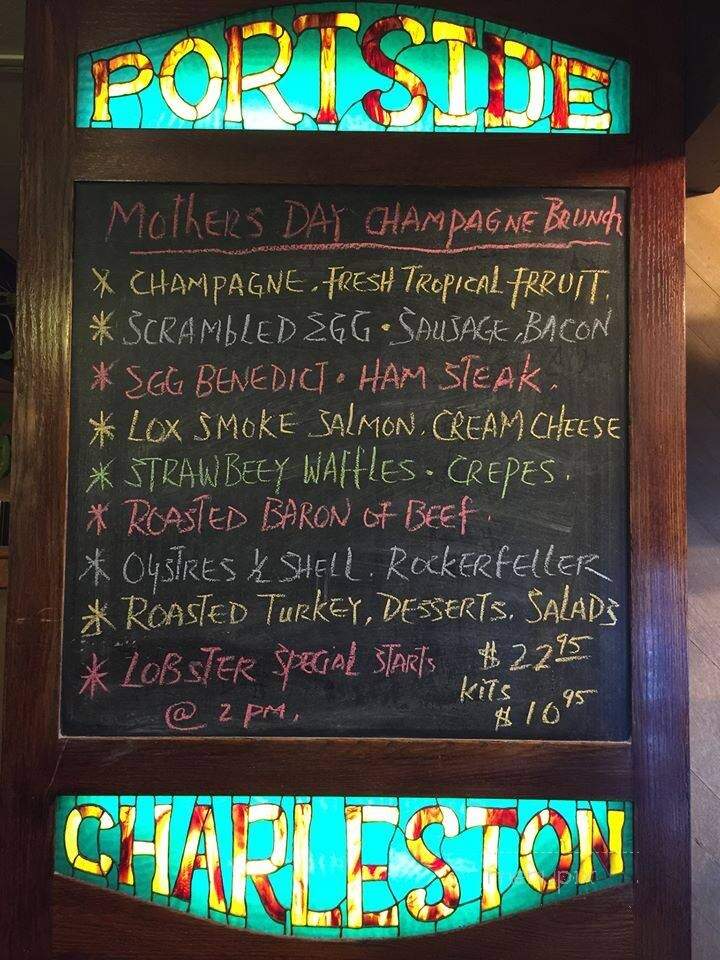 PORTSIDE
MOTHERS DAY CHAMPAGNE BRUNCH
* CHAMPAGNE. FRESH TROPICAL FRRUIT.
* SCRAMBLED EGG • SAUSAGE, BACON
* EGG BENEDICT • HAM STEAK.
* LOX SMOKE SALMON. CREAM CHEESE
* STRAWBEEY WAFFLES • CREPES.
* ROASTED BARON OF BEEF.
* OYSTRES ½ SHELL. ROCKERFELLER
* ROASTED TURKEY, DESSERTS. SALADS
* LOBSTER SPECIAL STARTS $22.95
@ 2 PM. KITS $10.95
CHARLESTON